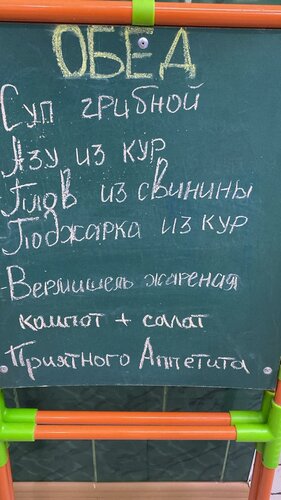 ОБЕД
Суп грибной
Азу из кур
Плов из свинины
Поджарка из кур
Вермишель жареная
компот + салат
Приятного Аппетита